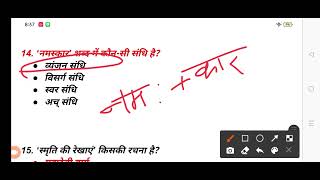 8:57
14. 'नमस्कार' शब्द में कौन-सी संधि है?
• व्यंजन संधि
• विसर्ग संधि
• स्वर संधि
• अच् संधि
नम: + कार
15. 'स्मृति की रेखाएं' किसकी रचना है?